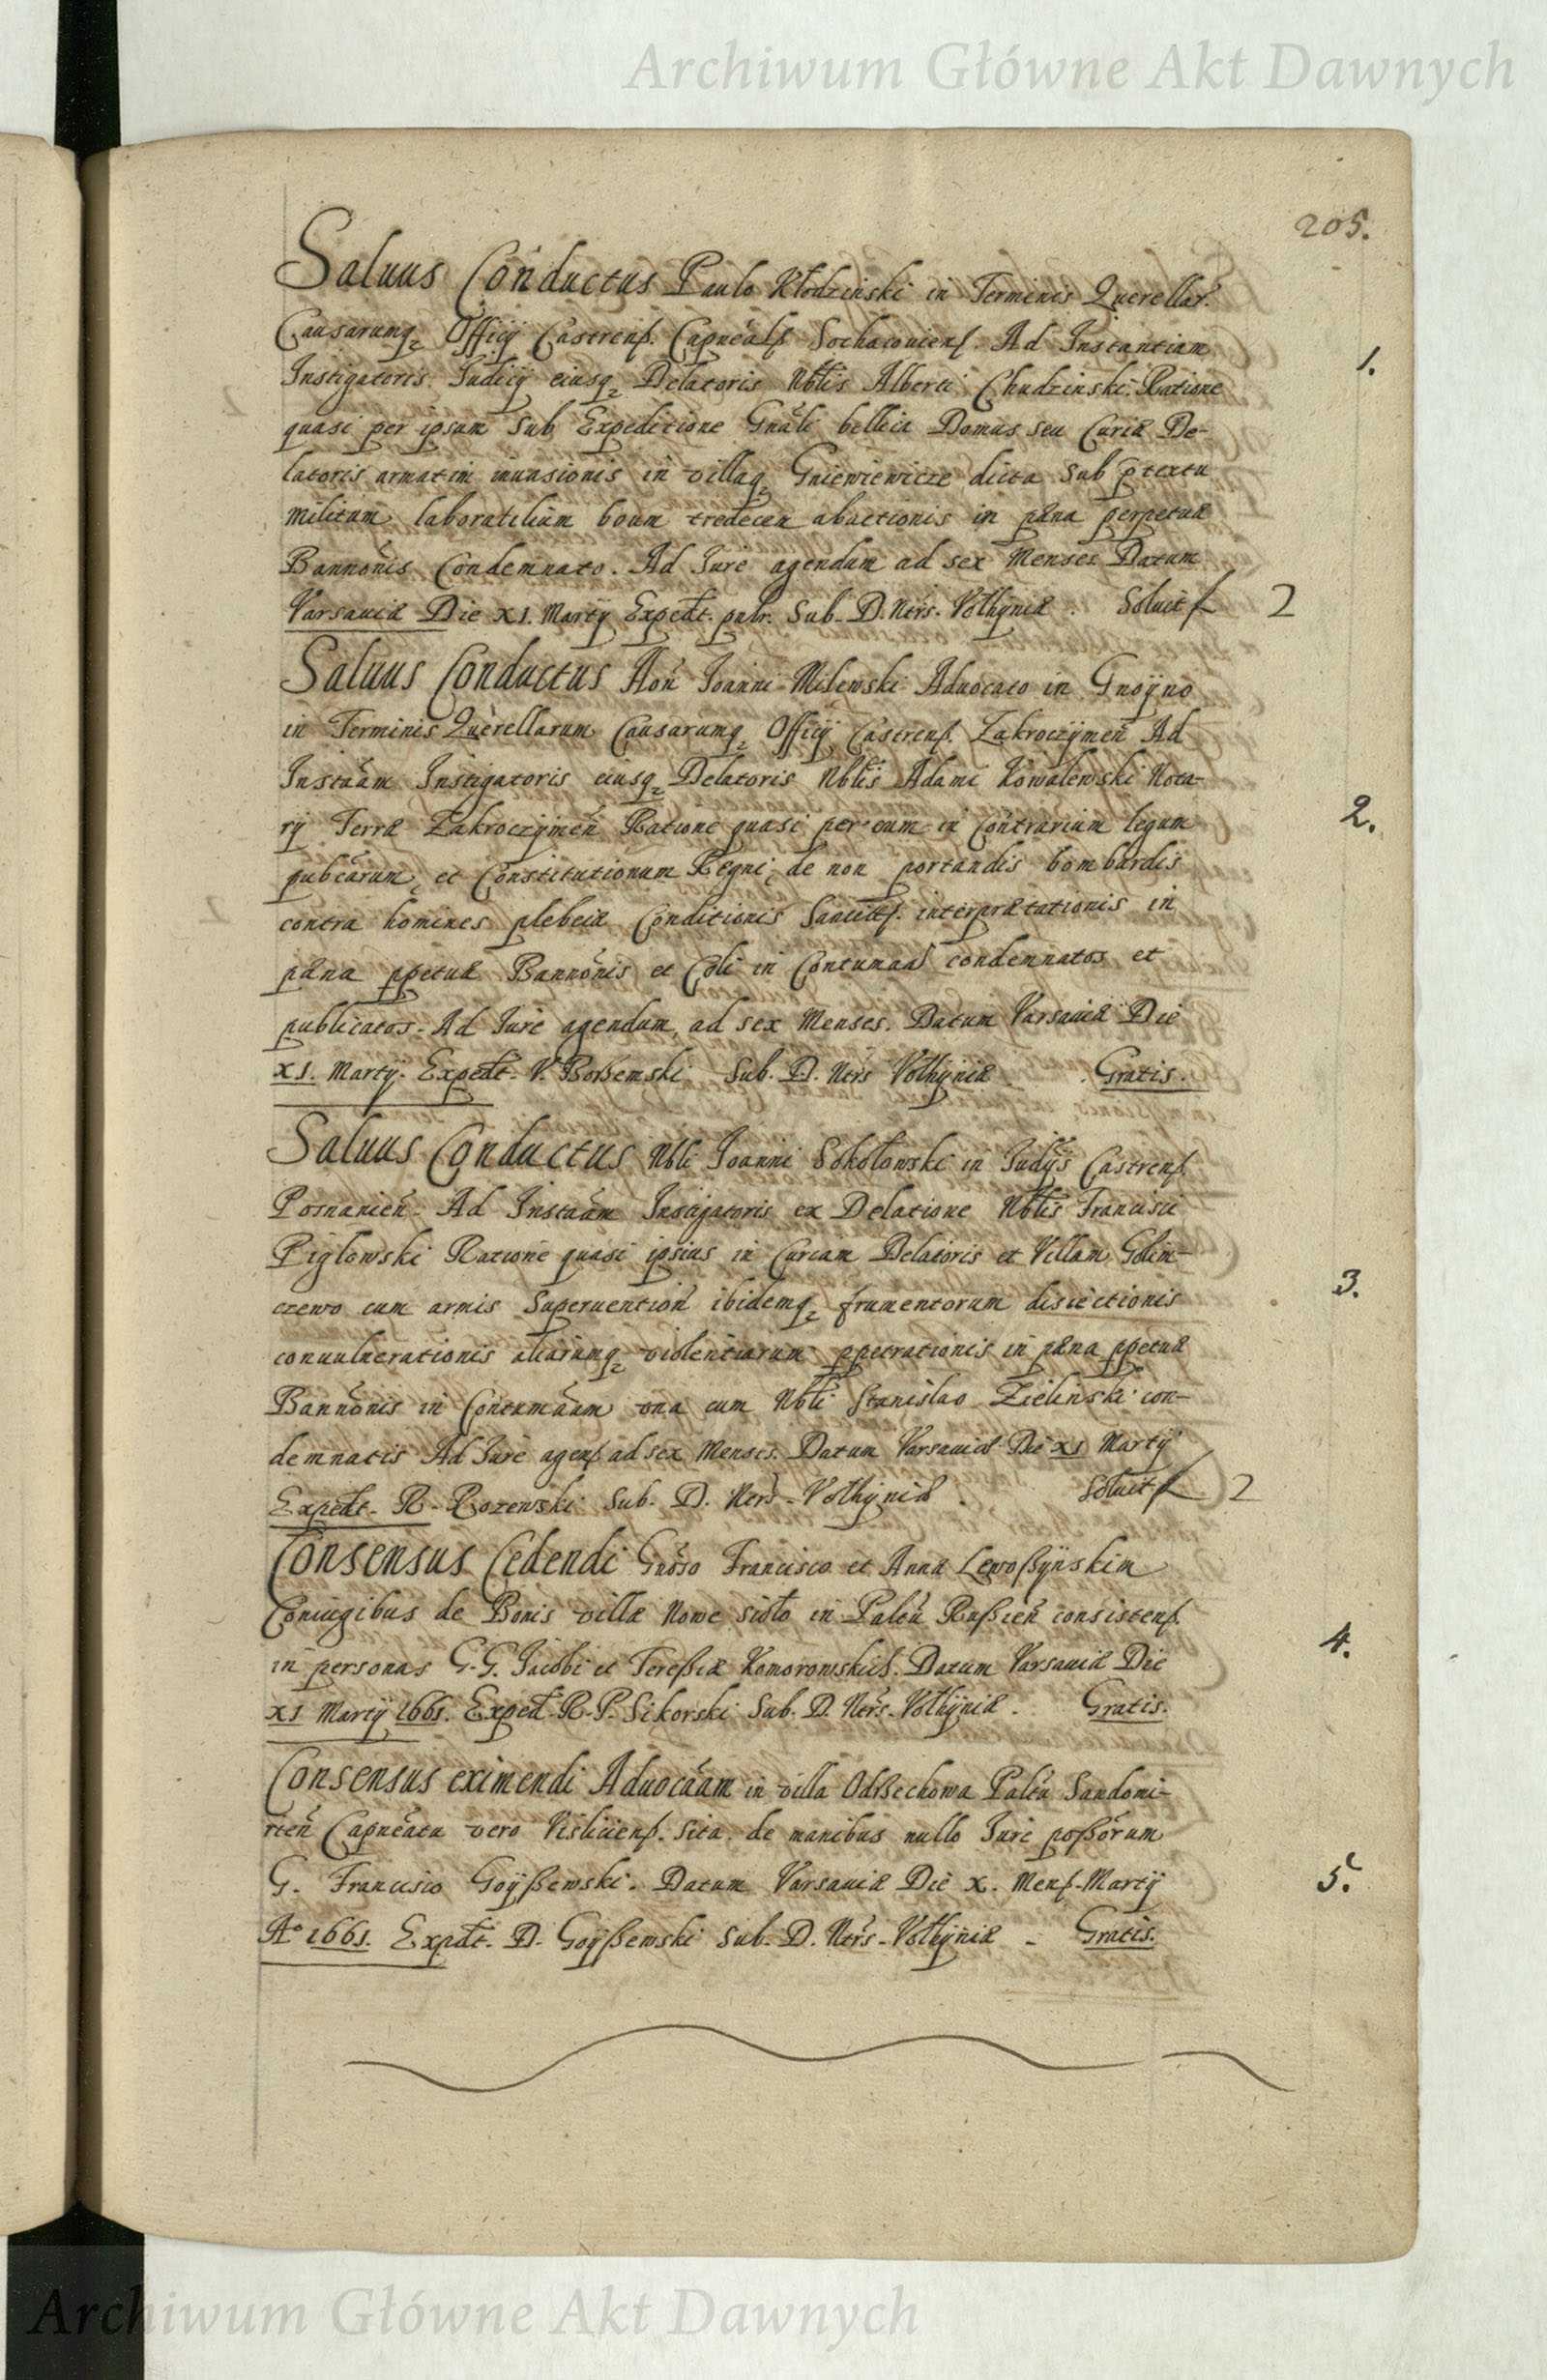 Archiwum Główne Akt Dawnych
205.
Saluus Conductus Paulo Kłodzinski in Terminis Querellar.
Causarumq, Officij Castrens. Capneals Sochaconiens. Ad Instantiam
1.
Instigatoris Judicij eiusq, Delatoris Nblis Alberti Chudzinski Ratione
quasi per ipsum sub Expeditione Gnali bellica Domus seu Curiæ De-
latoris armatim inuasionis in villaq, Gniewiewicze dicta sub ptextu
militum laboratilium boum tredecem abactionis in pæna perpetuæ
Bannonis Condemnato. Ad Jure agendum ad sex Menses Datum
Varsauiæ Die XI. Martij Expedt. palr. Sub. D. Ners. Volhyniæ. Soluit f 2
Saluus Conductus Hon Joanni Milewski Aduocato in Gnoyno
in Terminis Querellarum Causarumq, Officij Castrens. Zakroczymen Ad
Instaam Instigatoris eiusq, Delatoris Nblis Adami Kowalewski Nota-
2.
rij Terræ Zakroczymen Ratione quasi per eum in Contrarium legum
pubcarum, et Constitutionum Regni, de non portandis bombardis
contra homines plebeiæ Conditionis Sancits. interprætationis in
pæna ppetuæ Bannonis et Coli in Contumaa condemnatos et
publicatos. Ad Jure agendum, ad sex Menses. Datum Varsauiæ Die
XI. Martij. Expedt. V. Boßemski Sub. D. Ners Volhyniæ. Gratis.
Saluus Conductus Nbli Joanni Sokołowski in Judijs Castrens.
Posnanien. Ad Instaam Instigatoris ex Delatione Nblis Francisci
Piglowski Ratione quasi ipsius in Curiam Delatoris et Villam Golim-
3.
czewo cum armis Superuention ibidemq, frumentorum disiectionis
conuulnerationis aliarumq, violentiarum ppetrationis in pæna ppetuæ
Bannonis in Contumaam vna cum Nbli Stanislao Zielinski con-
demnatis Ad Jure agens ad sex Menses. Datum Varsauiæ Die XI Martij
Expedt. R. Rozewski Sub. D. Ners. Volhyniæ. Soluit f 2
Consensus Cedendi Gnoso Francisco et Anna Lewoßynskim
Coniugibus de Bonis villæ Nowe Sioło in Paltu Rußien consistens.
4.
in personas G.G. Jacobi et Tereßiæ Komorowskich. Datum Varsauiæ Die
XI Martij 1661. Exped. R. P. Sikorski Sub. D. Ners. Volhyniæ. Gratis.
Consensus eximendi Aduocaam in villa Odßechowa Paltu Sandomi-
rien Capneatu vero Visliciens. sita de manibus nullo Jure poßorum
5.
G. Francisco Goyßewski. Datum Varsauiæ Die X. Mens. Martij
Ao 1661. Expdt. D. Goyßewski Sub. D. Ners. Volhyniæ. Gratis.
Archiwum Główne Akt Dawnych